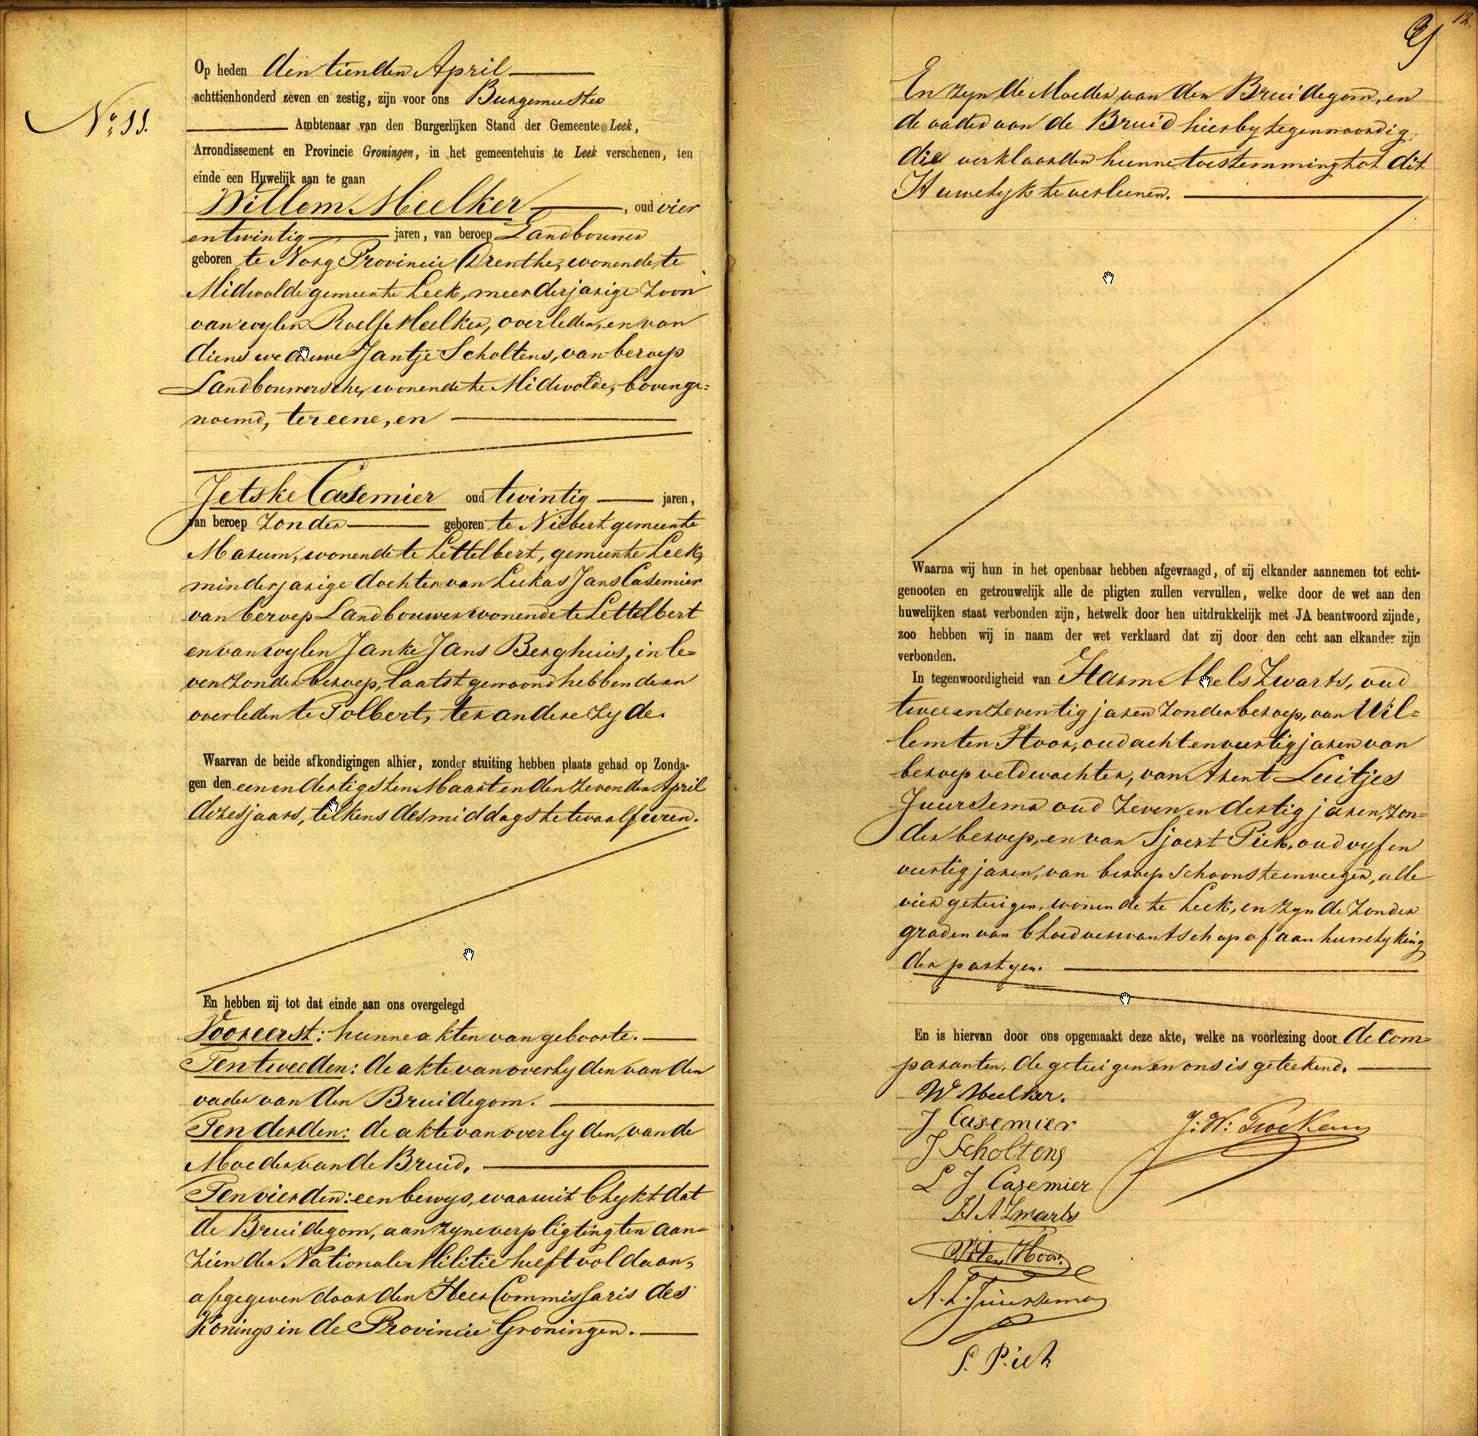 No. 11.
Op heden den tienden April
achttienhonderd zeven en zestig, zijn voor ons Burgemeester
Ambtenaar van den Burgerlijken Stand der Gemeente Leek,
Arrondissement en Provincie Groningen, in het gemeentehuis te Leek verschenen, ten
einde een Huwelijk aan te gaan
Willem Meelker, oud vier
entwintig jaren, van beroep Landbouwer
geboren te Norg Provincie Drenthe, wonende te
Midwolde gemeente Leek, meerderjarige Zoon
van wylen Roelf Meelker, overleden, en van
diens weduwe Jantje Scholtens, van beroep
Landbouwersche, wonende te Midwolde, bovenge=
noemd, ter eene, en
Jetske Casemier oud twintig jaren,
van beroep Zonder geboren te Niebert gemeente
Marum, wonende te Lettelbert, gemeente Leek,
minderjarige dochter van Lukas Jans Casemier
van beroep Landbouwer wonende te Lettelbert
en van wylen Janke Jans Berghuis, in le=
ven Zonder beroep, laatst gewoond hebbende en
overleden te Tolbert, ter andere Zyde.
Waarvan de beide afkondigingen alhier, zonder stuiting hebben plaats gehad op Zonda-
gen den eenendertigsten Maart en den Zevenden April
dezes jaars, telkens des middags te twaalf uren.
En hebben zij tot dat einde aan ons overgelegd
Vooreerst: hunne akten van geboorte.
Ten tweeden: de akte van overlyden van den
vader van den Bruidegom.
Ten derden: de akte van overlyden, van de
Moeder van de Bruid.
Ten vierden: een bewys, waaruit blykt dat
de Bruidegom, aan zyne verpligting ten aan=
zien der Nationale Militie heeft voldaan,
afgegeven door den Heer Commissaris des
Konings in de Provincie Groningen.
12.
En zyn de Moeder van den Bruidegom, en
de vader van de Bruid hierby tegenwoordig
die verklaarden hunne toestemming tot dit
Huwelyk te verleenen.
Waarna wij hun in het openbaar hebben afgevraagd, of zij elkander aannemen tot echt-
genooten en getrouwelijk alle de pligten zullen vervullen, welke door de wet aan den
huwelijken staat verbonden zijn, hetwelk door hen uitdrukkelijk met JA beantwoord zijnde,
zoo hebben wij in naam der wet verklaard dat zij door den echt aan elkander zijn
verbonden.
In tegenwoordigheid van Harm Abels Zwarts, oud
tweeenzeventig jaren Zonder beroep, van Wil=
lem ten Hoor, oud achtenveertig jaren van
beroep veldwachter, van Arent Luitjes
Juursema oud Zeven en dertig jaren, Zon=
der beroep, en van Sjoert Piek, oud vyf en
veertig jaren, van beroep Schoorsteenveeger, alle
vier getuigen, wonende te Leek, en zynde Zonder
graden van bloedverwantschap of aanhuwelyking
der partyen.
En is hiervan door ons opgemaakt deze akte, welke na voorlezing door de com=
paranten, de getuigen en ons is geteekend.
W Meelker.
J Casemier
J Scholtens
L J Casemier
H A Zwarts
W ten Hoor.
A. L. Juursema
S. Piek